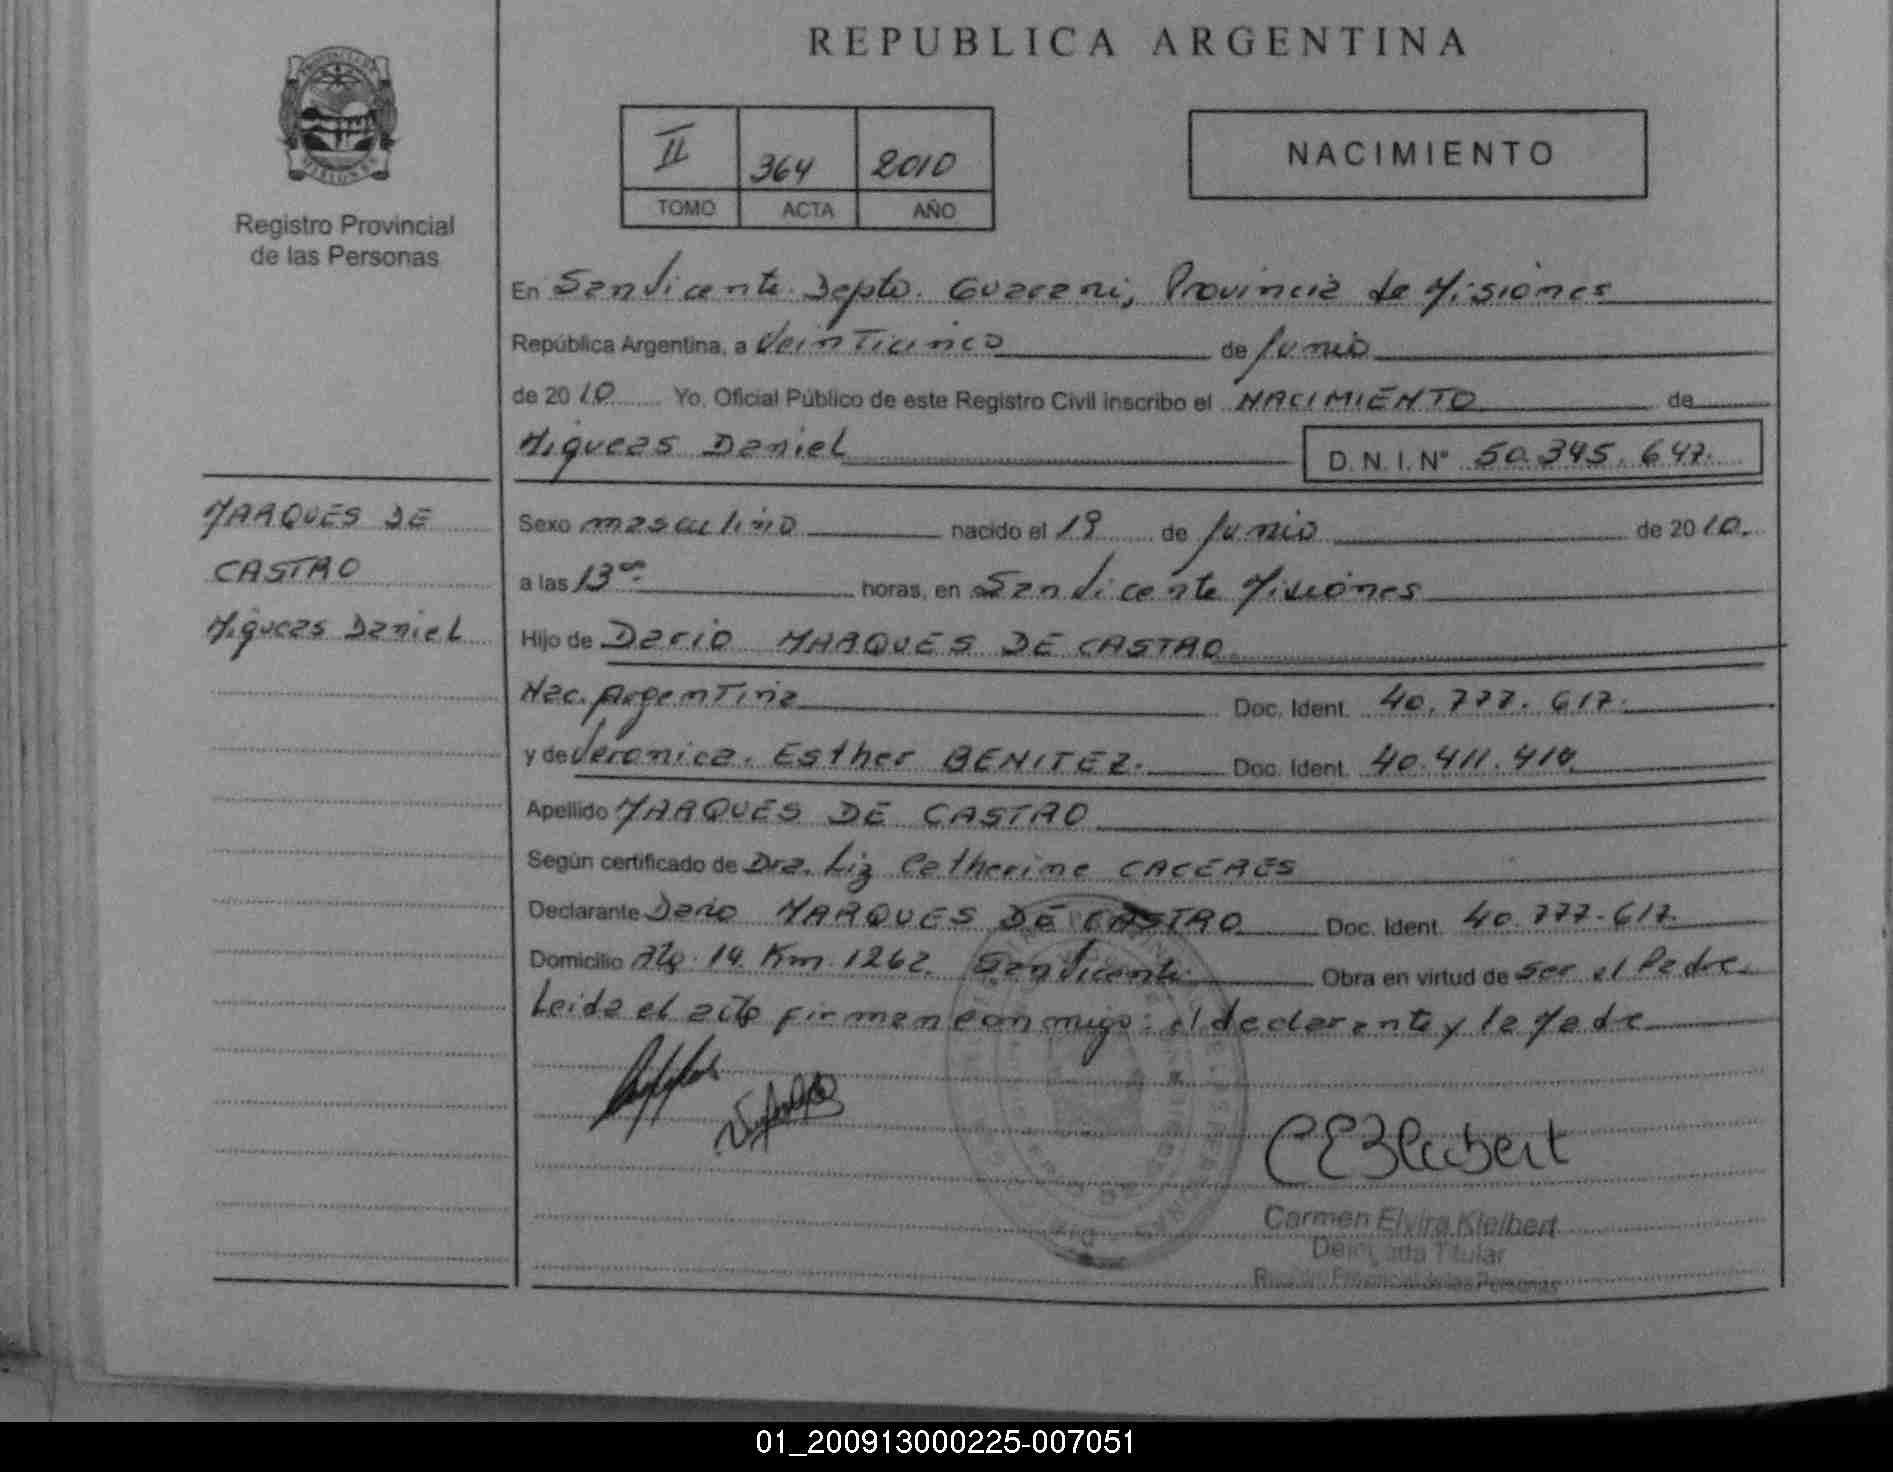 REPUBLICA ARGENTINA
PROVINCIA DE
MISIONES
Registro Provincial
de las Personas
II 364 2010
TOMO ACTA AÑO
NACIMIENTO
En San Vicente Depto. Guarani, Provincia de Misiones
República Argentina, a Veinticinco de Junio
de 2010 Yo, Oficial Público de este Registro Civil inscribo el NACIMIENTO de
Miqueas Daniel D. N. I. Nº 50.345.647.
MARQUES DE
CASTRO
Miqueas Daniel
Sexo masculino nacido el 19 de Junio de 2010.
a las 13 horas, en San Vicente Misiones
Hijo de Dario MARQUES DE CASTRO
Nac. Argentina Doc. Ident. 40.777.617.
y de Veronica Esther BENITEZ. Doc. Ident. 40.411.410
Apellido MARQUES DE CASTRO
Según certificado de Dra. Liz Catherine CACERES
Declarante Dario MARQUES DE CASTRO Doc. Ident. 40.777.617.
Domicilio Km. 1262. San Vicente Obra en virtud de ser el Padre.
Leida el acta firman conmigo: el declarante y la Madre
CEKleibert
Carmen Elvira Kleibert
Delegada Titular
Registro Provincial de las Personas
01_200913000225-007051